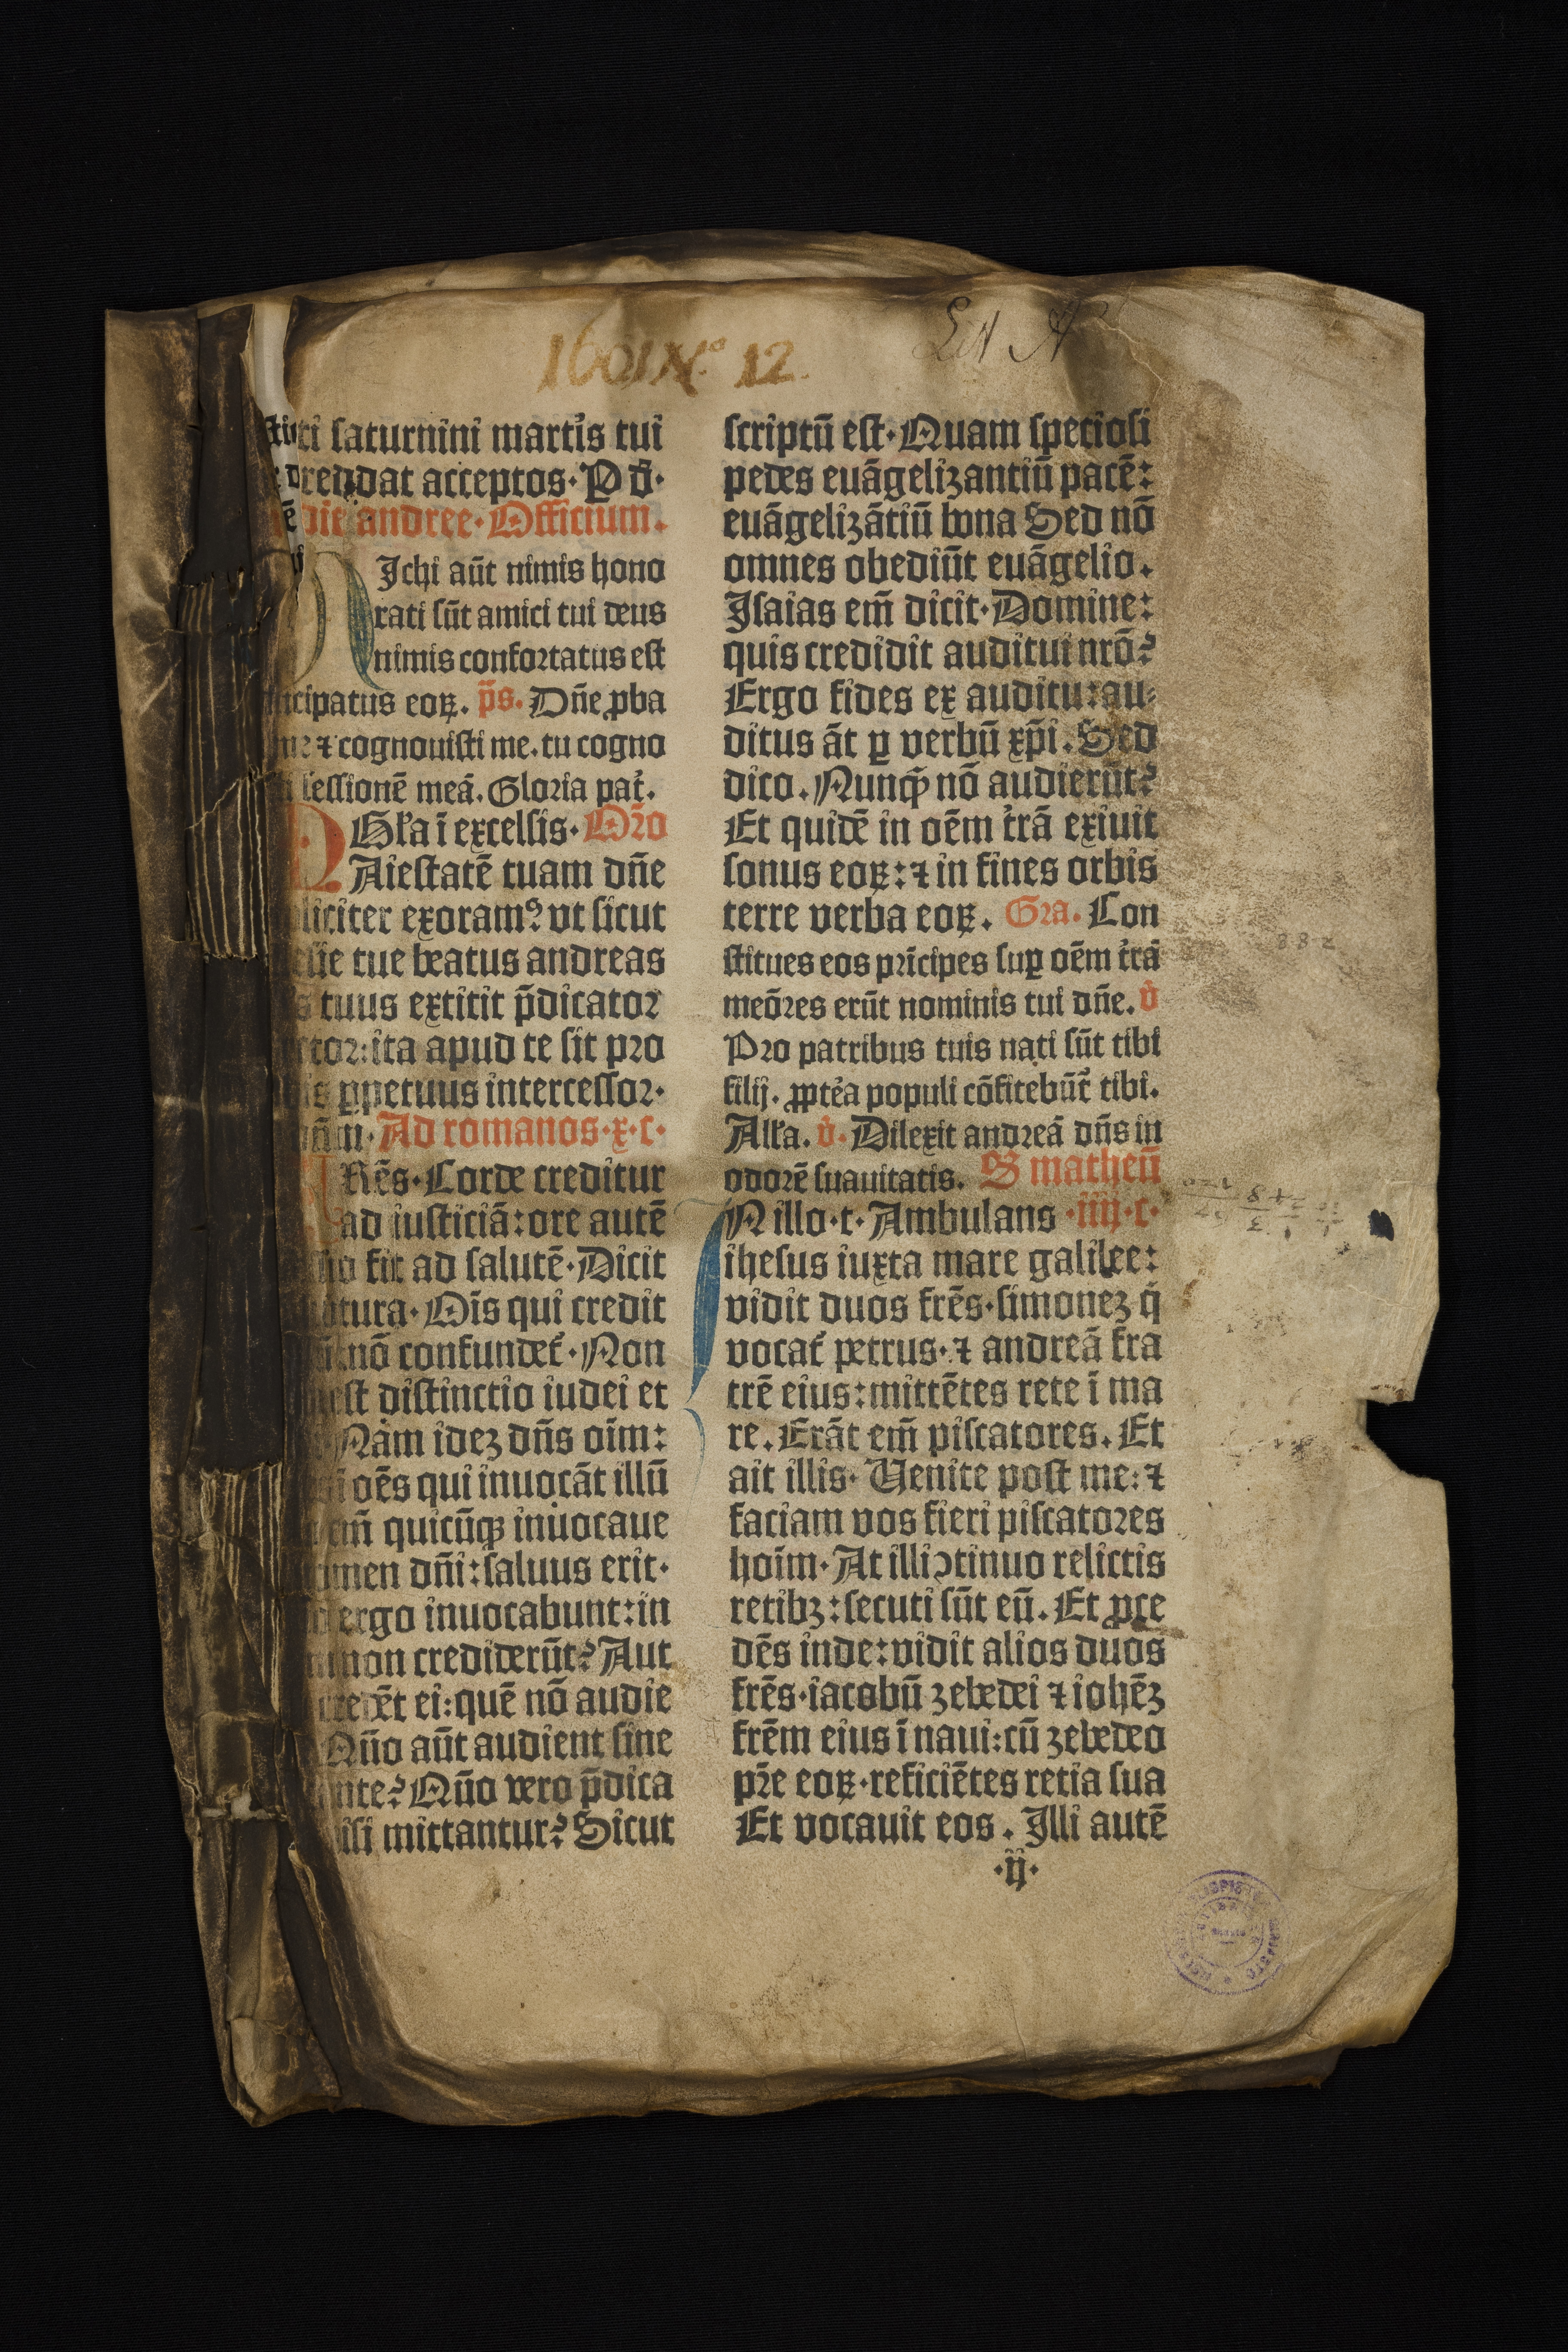 1601 N.º 12.
Lit A
saturnini martir̉s tui
reddat acceptos· P d̄·
die andree· Officium.
Ichi aūt nimis hono
rati sūt amici tui deus
nimis confortatus est
cipatus eoꝝ. p̄s. Dn̄e ꝓba
me ⁊ cognouisti me. tu cogno
sessionē meā. Gloria pat̉.
Gl̄a ī excelsis· Or̄o
Aiestatē tuam dn̄e
liciter exoramꝰ vt sicut
tue beatus andreas
tuus extitit p̄dicator
tor: ita apud te sit pro
ꝑpetuus intercessor·
Ad romanos· x· c·
Rēs· Corde creditur
ad iusticiā: ore autē
fit ad salutē· Dicit
tura· Oīs qui credit
nō confundet̉· Non
est distinctio iudei et
Nam idez dn̄s oīm:
oēs qui inuocāt illū
em̄ quicūqꝫ inuocaue
men dn̄i: saluus erit·
ergo inuocabunt: in
non crediderūt? Aut
credēt ei: quē nō audie
Quō aūt audient sine
nte? Quō vero p̄dica
isi mittantur? Sicut
scriptū est· Quam speciosi
pedes euāgelizantiū pacē:
euāgelizātiū bona Sed nō
omnes obediūt euāgelio.
Isaias em̄ dicit· Domine:
quis credidit auditui nrō?
Ergo fides ex auditu: au⸗
ditus āt ꝑ verbū xp̄i. Sed
dico. Nunqͣ̄ nō audierūt?
Et quidē in oēm t̉rā exiuit
sonus eoꝝ: ⁊ in fines orbis
terre verba eoꝝ. Gra. Con
stitues eos prīcipes suꝑ oēm t̉rā
meōres erūt nominis tui dn̄e. v̉
Pro patribus tuis nati sūt tibi
filij. ꝓpt̉ea populi cōfitebūt̉ tibi.
All̉a. v̉. Dilexit andreā dn̄s in
odorē suauitatis. S matheū
N illo· t· Ambulans ·iiij· c·
ihesus iuxta mare galilee:
vidit duos frēs· simonez q̇
vocat̉ petrus· ⁊ andreā fra
trē eius: mittētes rete ī ma
re. Erāt em̄ piscatores. Et
ait illis· Uenite post me: ⁊
faciam vos fieri piscatores
hoīm· At illi ↄtinuo relictis
retibꝫ: secuti sūt eū. Et ꝓce
dēs inde: vidit alios duos
frēs· iacobū zebedei ⁊ iohēz
frēm eius ī naui: cū zebedeo
pr̄e eoꝝ· reficiētes retia sua
Et vocauit eos. Illi autē
·ij·